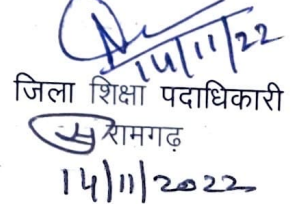 14/11/22
जिला शिक्षा पदाधिकारी
रामगढ़
14/11/2022